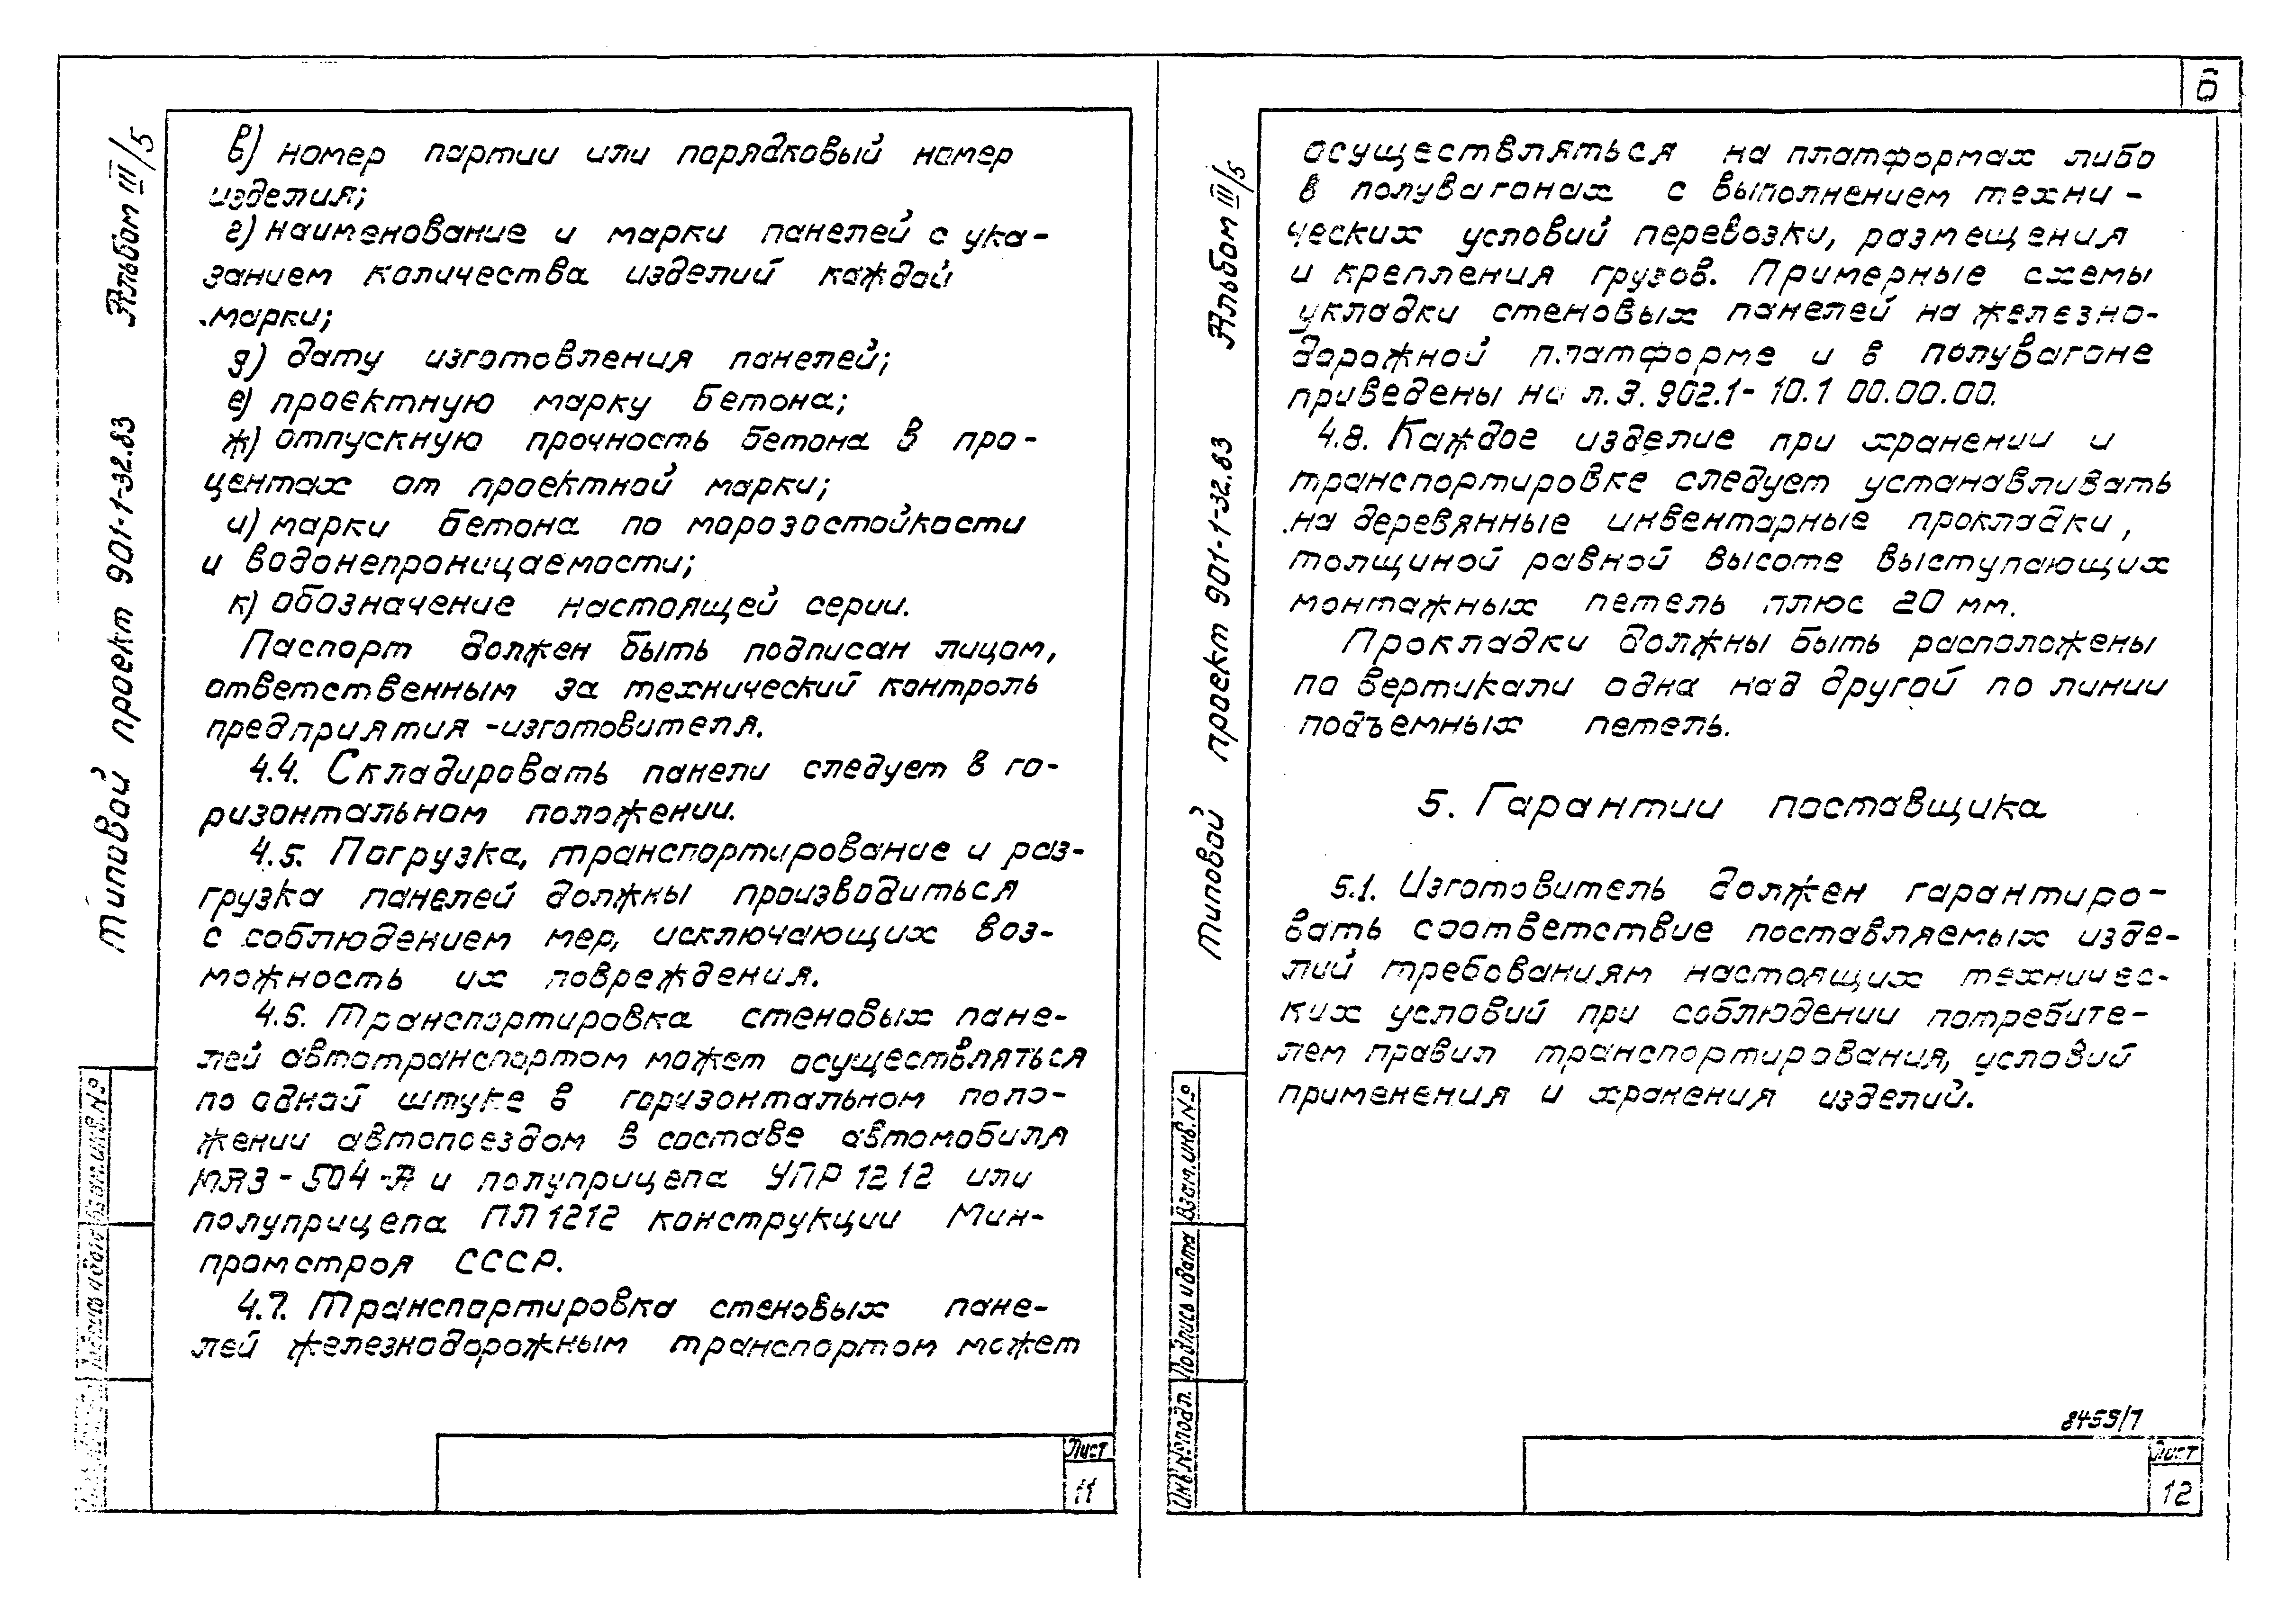 6
Типовой проект 901-1-32.83 Альбом III/5
в) номер партии или порядковый номер
изделия;
г) наименование и марки панелей с ука-
занием количества изделий каждой
марки;
д) дату изготовления панелей;
е) проектную марку бетона;
ж) отпускную прочность бетона в про-
центах от проектной марки;
и) марки бетона по морозостойкости
и водонепроницаемости;
к) обозначение настоящей серии.
Паспорт должен быть подписан лицом,
ответственным за технический контроль
предприятия-изготовителя.
4.4. Складировать панели следует в го-
ризонтальном положении.
4.5. Погрузка, транспортирование и раз-
грузка панелей должны производиться
с соблюдением мер, исключающих воз-
можность их повреждения.
4.6. Транспортировка стеновых пане-
лей автотранспортом может осуществляться
по одной штуке в горизонтальном поло-
жении автопоездом в составе автомобиля
МАЗ-504-А и полуприцепа УПР 1212 или
полуприцепа ПЛ 1212 конструкции Мин-
промстроя СССР.
4.7. Транспортировка стеновых пане-
лей железнодорожным транспортом может
Взам.инв.№
Лист
11
Типовой проект 901-1-32.83 Альбом III/5
осуществляться на платформах либо
в полувагонах с выполнением техни-
ческих условий перевозки, размещения
и крепления грузов. Примерные схемы
укладки стеновых панелей на железно-
дорожной платформе и в полувагоне
приведены на л.3.902.1-10.1 00.00.00.
4.8. Каждое изделие при хранении и
транспортировке следует устанавливать
на деревянные инвентарные прокладки,
толщиной равной высоте выступающих
монтажных петель плюс 20 мм.
Прокладки должны быть расположены
по вертикали одна над другой по линии
подъемных петель.
5. Гарантии поставщика
5.1. Изготовитель должен гарантиро-
вать соответствие поставляемых изде-
лий требованиям настоящих техничес-
ких условий при соблюдении потребите-
лем правил транспортирования, условий
применения и хранения изделий.
Взам.инв.№
Подпись и дата
Инв.№подл.
8455/7
Лист
12